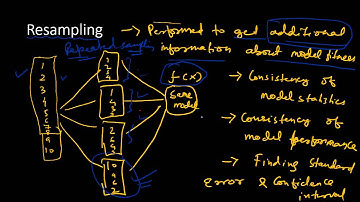 Resampling → Performed to get additional
information about model fitness
Repeated samples
1
2
3
4
5
6
7
8
9
10
f(x)
same
model
→ Consistency of
model statistics
→ Consistency of
model performance
→ Finding standard
error & Confidence
interval
10
9
6
2